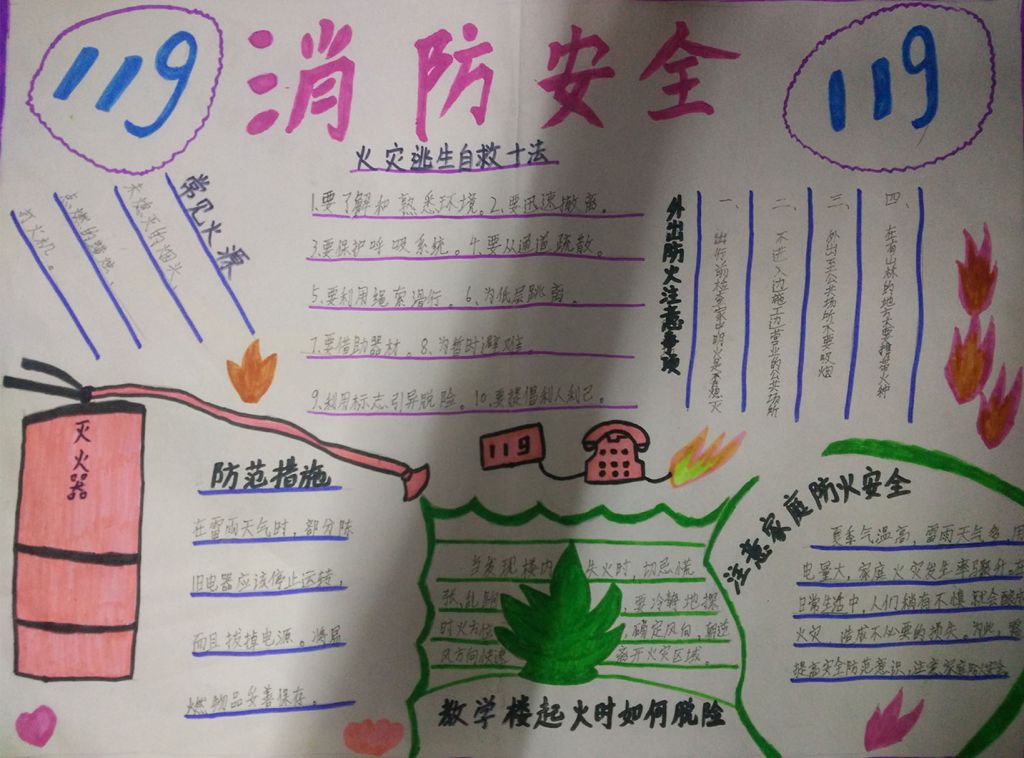 119
消防安全
119
火灾逃生自救十法
1.要了解和熟悉环境。2.要迅速撤离。
3.要保护呼吸系统。4.要从通道疏散。
5.要利用绳索滑行。6.为低层跳离。
7.要借助器材。8.为暂时避难。
9.利用标志引导脱险。10.要提倡利人利己。
常见火源
未熄灭的烟头、
点燃的
打火机。
外出防火注意事项
一、出行前检查家中明火是否熄灭
二、不进入边施工边营业的公共场所
三、外出至公共场所不要吸烟
四、在有山林的地方不要携带火种
灭火器
119
防范措施
在雷雨天气时，部分陈
旧电器应该停止运转，
而且拔掉电源。将易
燃物品妥善保存。
当发现楼内失火时，切忌慌
张、乱，要冷静地探
明火，确定风向，朝逆
风方向快速离开火灾区域。
教学楼起火时如何脱险
注意家庭防火安全
夏季气温高，雷雨天气多，用
电量大，家庭火灾发生率骤升，在
日常生活中，人们稍有不慎就会酿成
火灾，造成不必要的损失。为此，需
提高安全防范意识，注意家庭防火